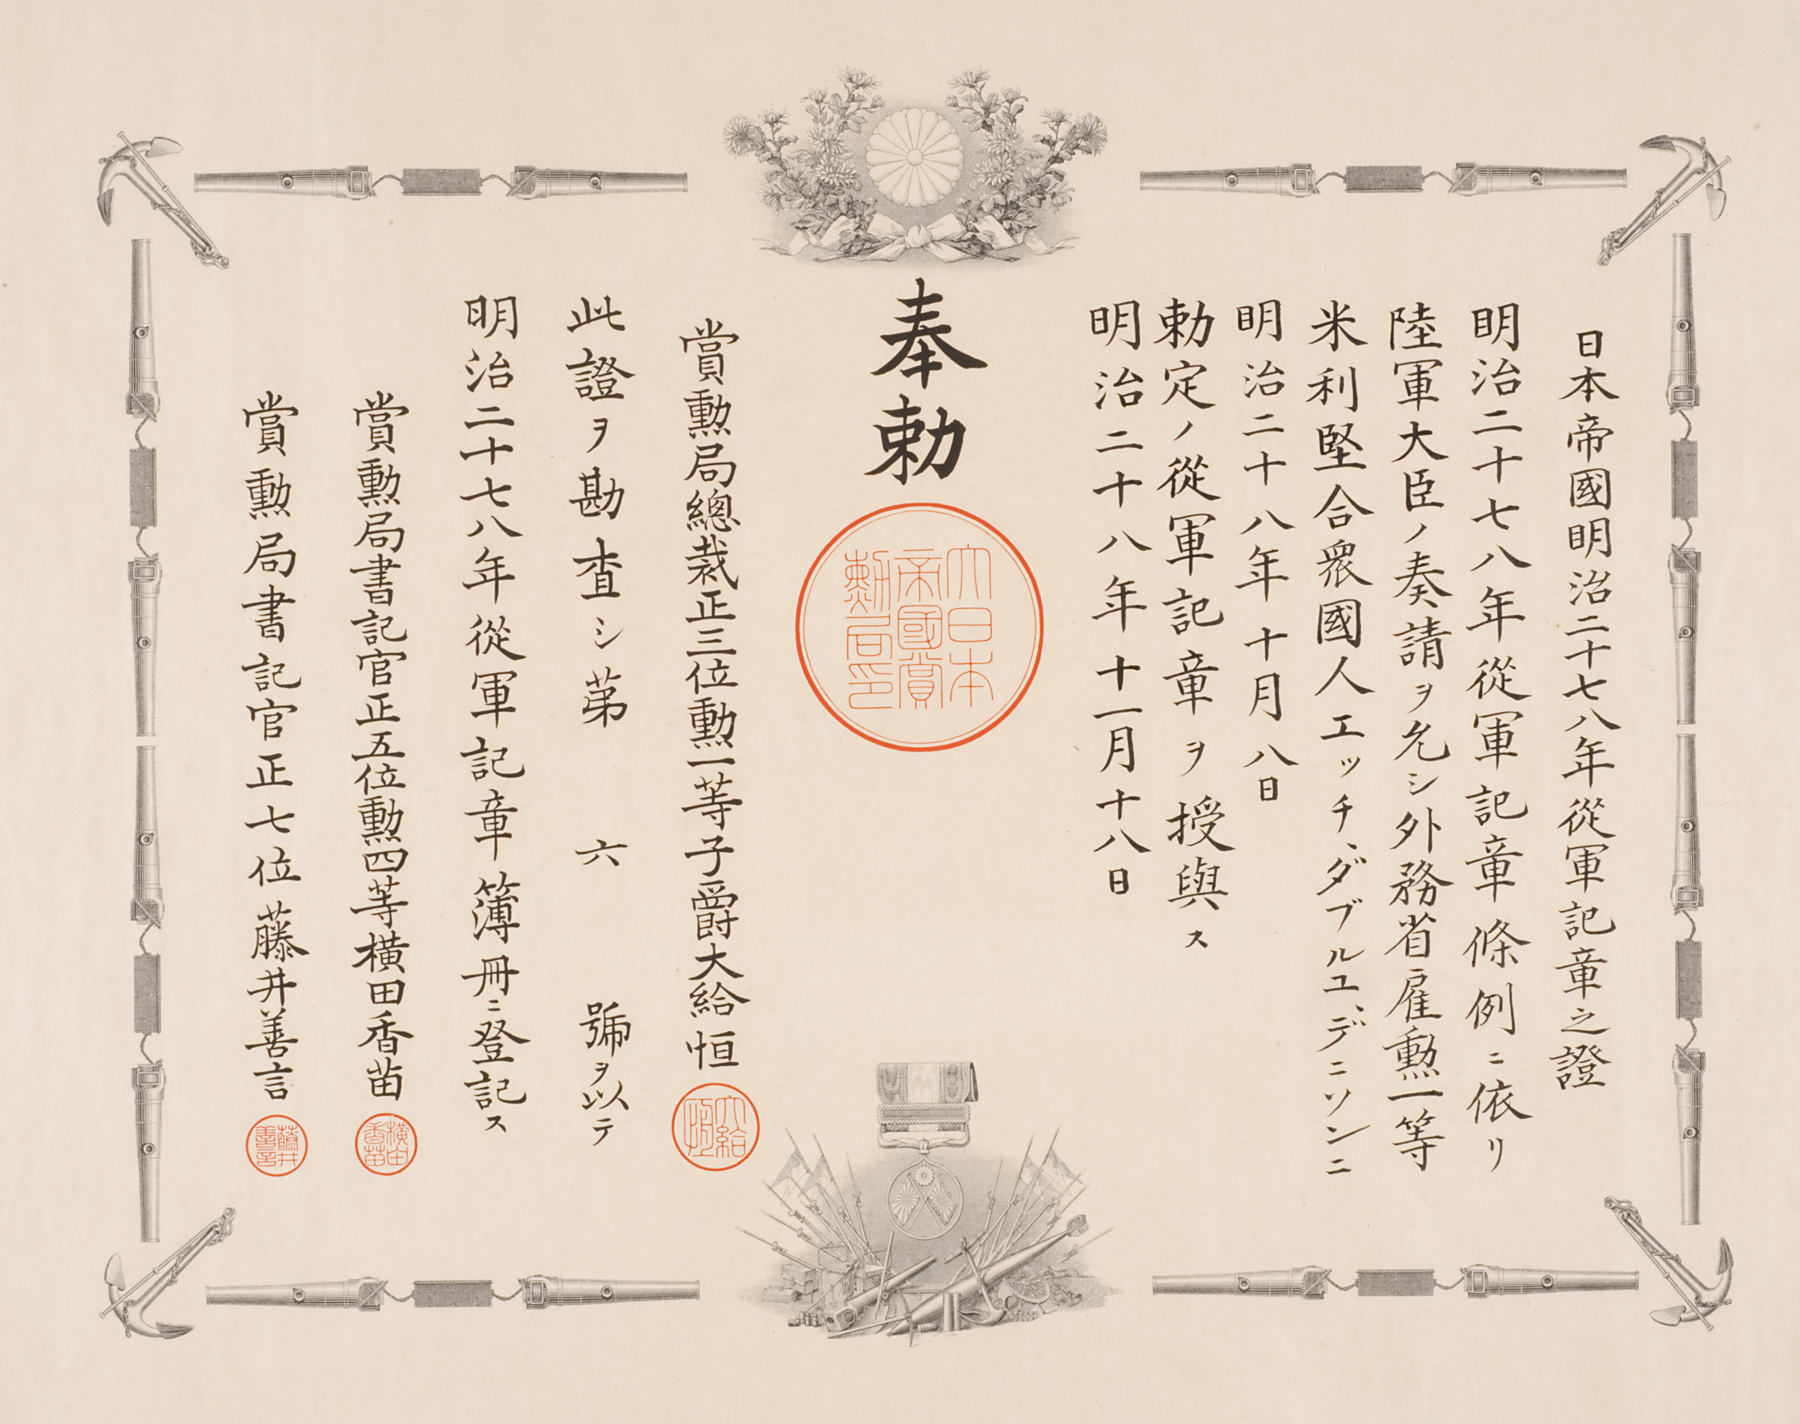 日本帝國明治二十七八年從軍記章之證
明治二十七八年從軍記章條例ニ依リ
陸軍大臣ノ奏請ヲ允シ外務省雇勲一等
米利堅合衆國人エッチ、ダブルユ、デニソンニ
明治二十八年十月八日
勅定ノ從軍記章ヲ授與ス
明治二十八年十一月十八日
奉勅
大日本
帝國賞
勲局印
賞勲局總裁正三位勲一等子爵大給恒
大給
恒
此證ヲ勘査シ第六號ヲ以テ
明治二十七八年從軍記章簿冊ニ登記ス
賞勲局書記官正五位勲四等横田香苗
横田
香苗
賞勲局書記官正七位藤井善言
藤井
善言